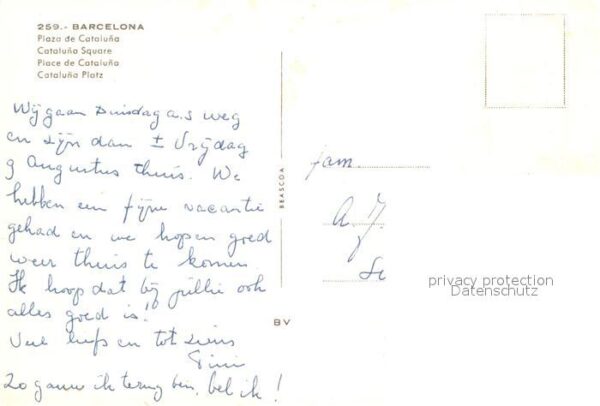 259.- BARCELONA
Plaza de Cataluña
Cataluña Square
Place de Cataluña
Cataluña Platz
Wij gaan Dinsdag a.s weg
en zijn dan ± Vrijdag
9 Augustus thuis. We
hebben een fijne vacantie
gehad en we hopen goed
weer thuis te komen.
Ik hoop dat bij jullie ook
alles goed is!
Veel liefs en tot ziens
Zo gauw ik terug ben, bel ik!
BEASCOA
BV
fam.
privacy protection
Datenschutz